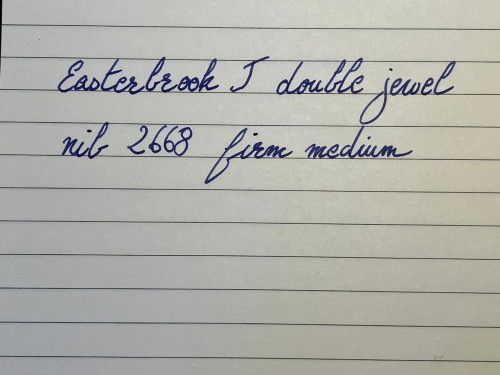 Easterbrook J double jewel
nib 2668 firm medium